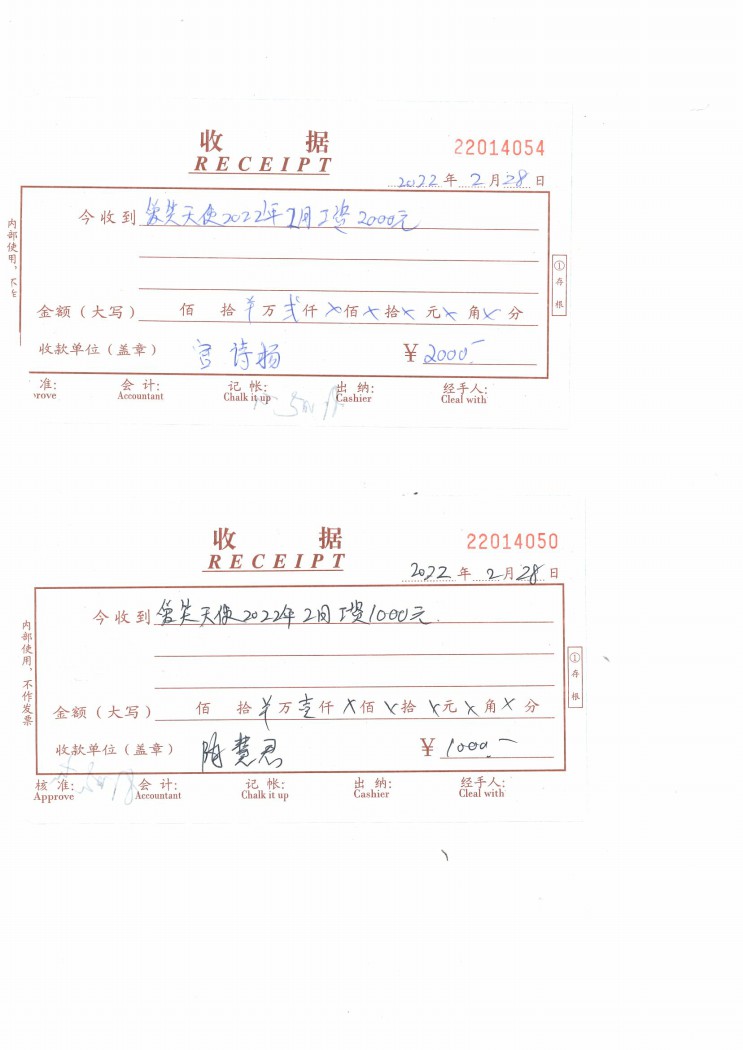 收 据
RECEIPT
22014054
2022 年 2 月 28 日
今收到 爱笑天使2022年2月工资2000元
金额（大写） 佰 拾 ¥ 万 贰 仟 X 佰 X 拾 X 元 X 角 X 分
收款单位（盖章） 宫诗杨 ¥ 2000.-
准: 会 计: 记 帐: 出 纳: 经手人:
rove Accountant Chalk it up Cashier Cleal with
内部使用，不
① 存根
收 据
RECEIPT
22014050
2022 年 2 月 28 日
今收到 爱笑天使2022年2月工资1000元.
金额（大写） 佰 拾 ¥ 万 壹 仟 X 佰 X 拾 X 元 X 角 X 分
收款单位（盖章） 陈慧君 ¥ 1000.-
核 准: 会 计: 记 帐: 出 纳: 经手人:
Approve Accountant Chalk it up Cashier Cleal with
内部使用，不作发票
① 存根